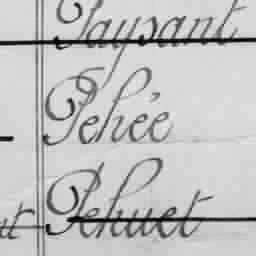 Paysant
Pehée
Pehuet